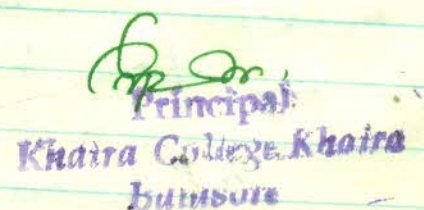 Principal
Khaira College, Khaira
Balasore